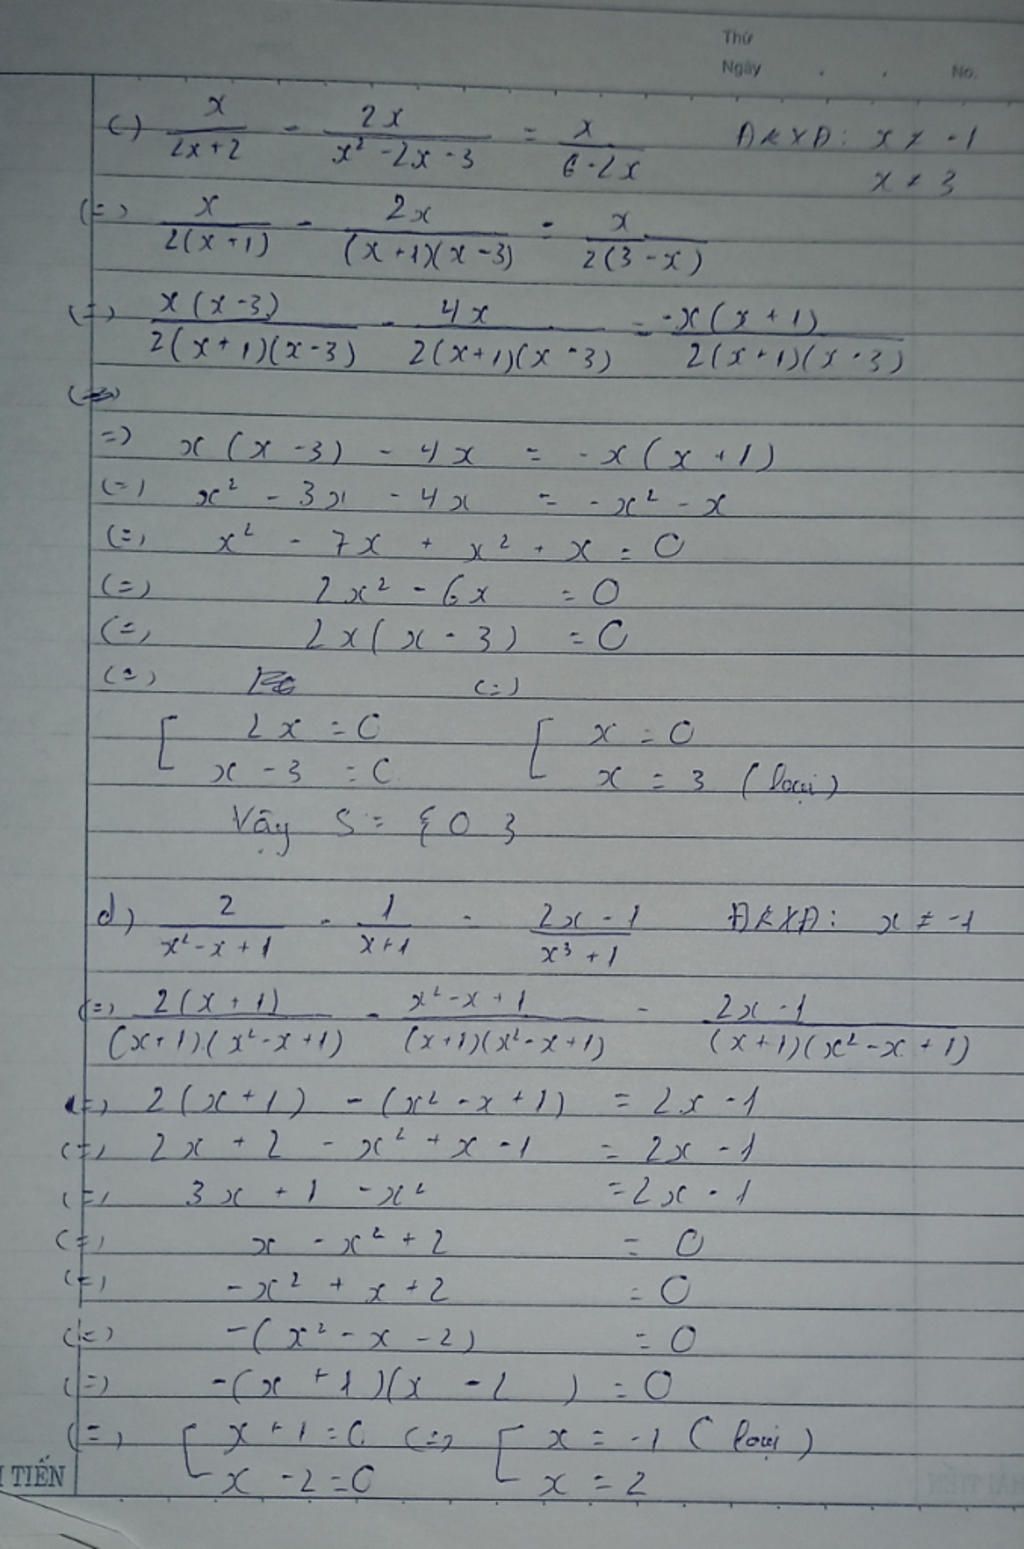 Thứ
Ngày . . No.
c) x/(2x+2) - 2x/(x² - 2x - 3) = x/(6 - 2x) ĐKXĐ: x ≠ -1
x ≠ 3
(=) x/(2(x+1)) - 2x/((x+1)(x-3)) = x/(2(3-x))
(=) x(x-3)/(2(x+1)(x-3)) - 4x/(2(x+1)(x-3)) = -x(x+1)/(2(x+1)(x-3))
=) x(x-3) - 4x = -x(x+1)
(=) x² - 3x - 4x = -x² - x
(=) x² - 7x + x² + x = 0
(=) 2x² - 6x = 0
(=) 2x(x-3) = 0
(=) (=)
[ 2x = 0 [ x = 0
x - 3 = 0 x = 3 (loại)
Vậy S = {0}
d) 2/(x² - x + 1) - 1/(x+1) = (2x-1)/(x³+1) ĐKXĐ: x ≠ -1
(=) 2(x+1)/((x+1)(x²-x+1)) - (x²-x+1)/((x+1)(x²-x+1)) = (2x-1)/((x+1)(x²-x+1))
(=) 2(x+1) - (x²-x+1) = 2x-1
(=) 2x + 2 - x² + x - 1 = 2x - 1
(=) 3x + 1 - x² = 2x - 1
(=) x - x² + 2 = 0
(=) -x² + x + 2 = 0
(=) -(x² - x - 2) = 0
(=) -(x+1)(x-2) = 0
(=) [ x + 1 = 0 (=) [ x = -1 (loại)
x - 2 = 0 x = 2
TIẾN